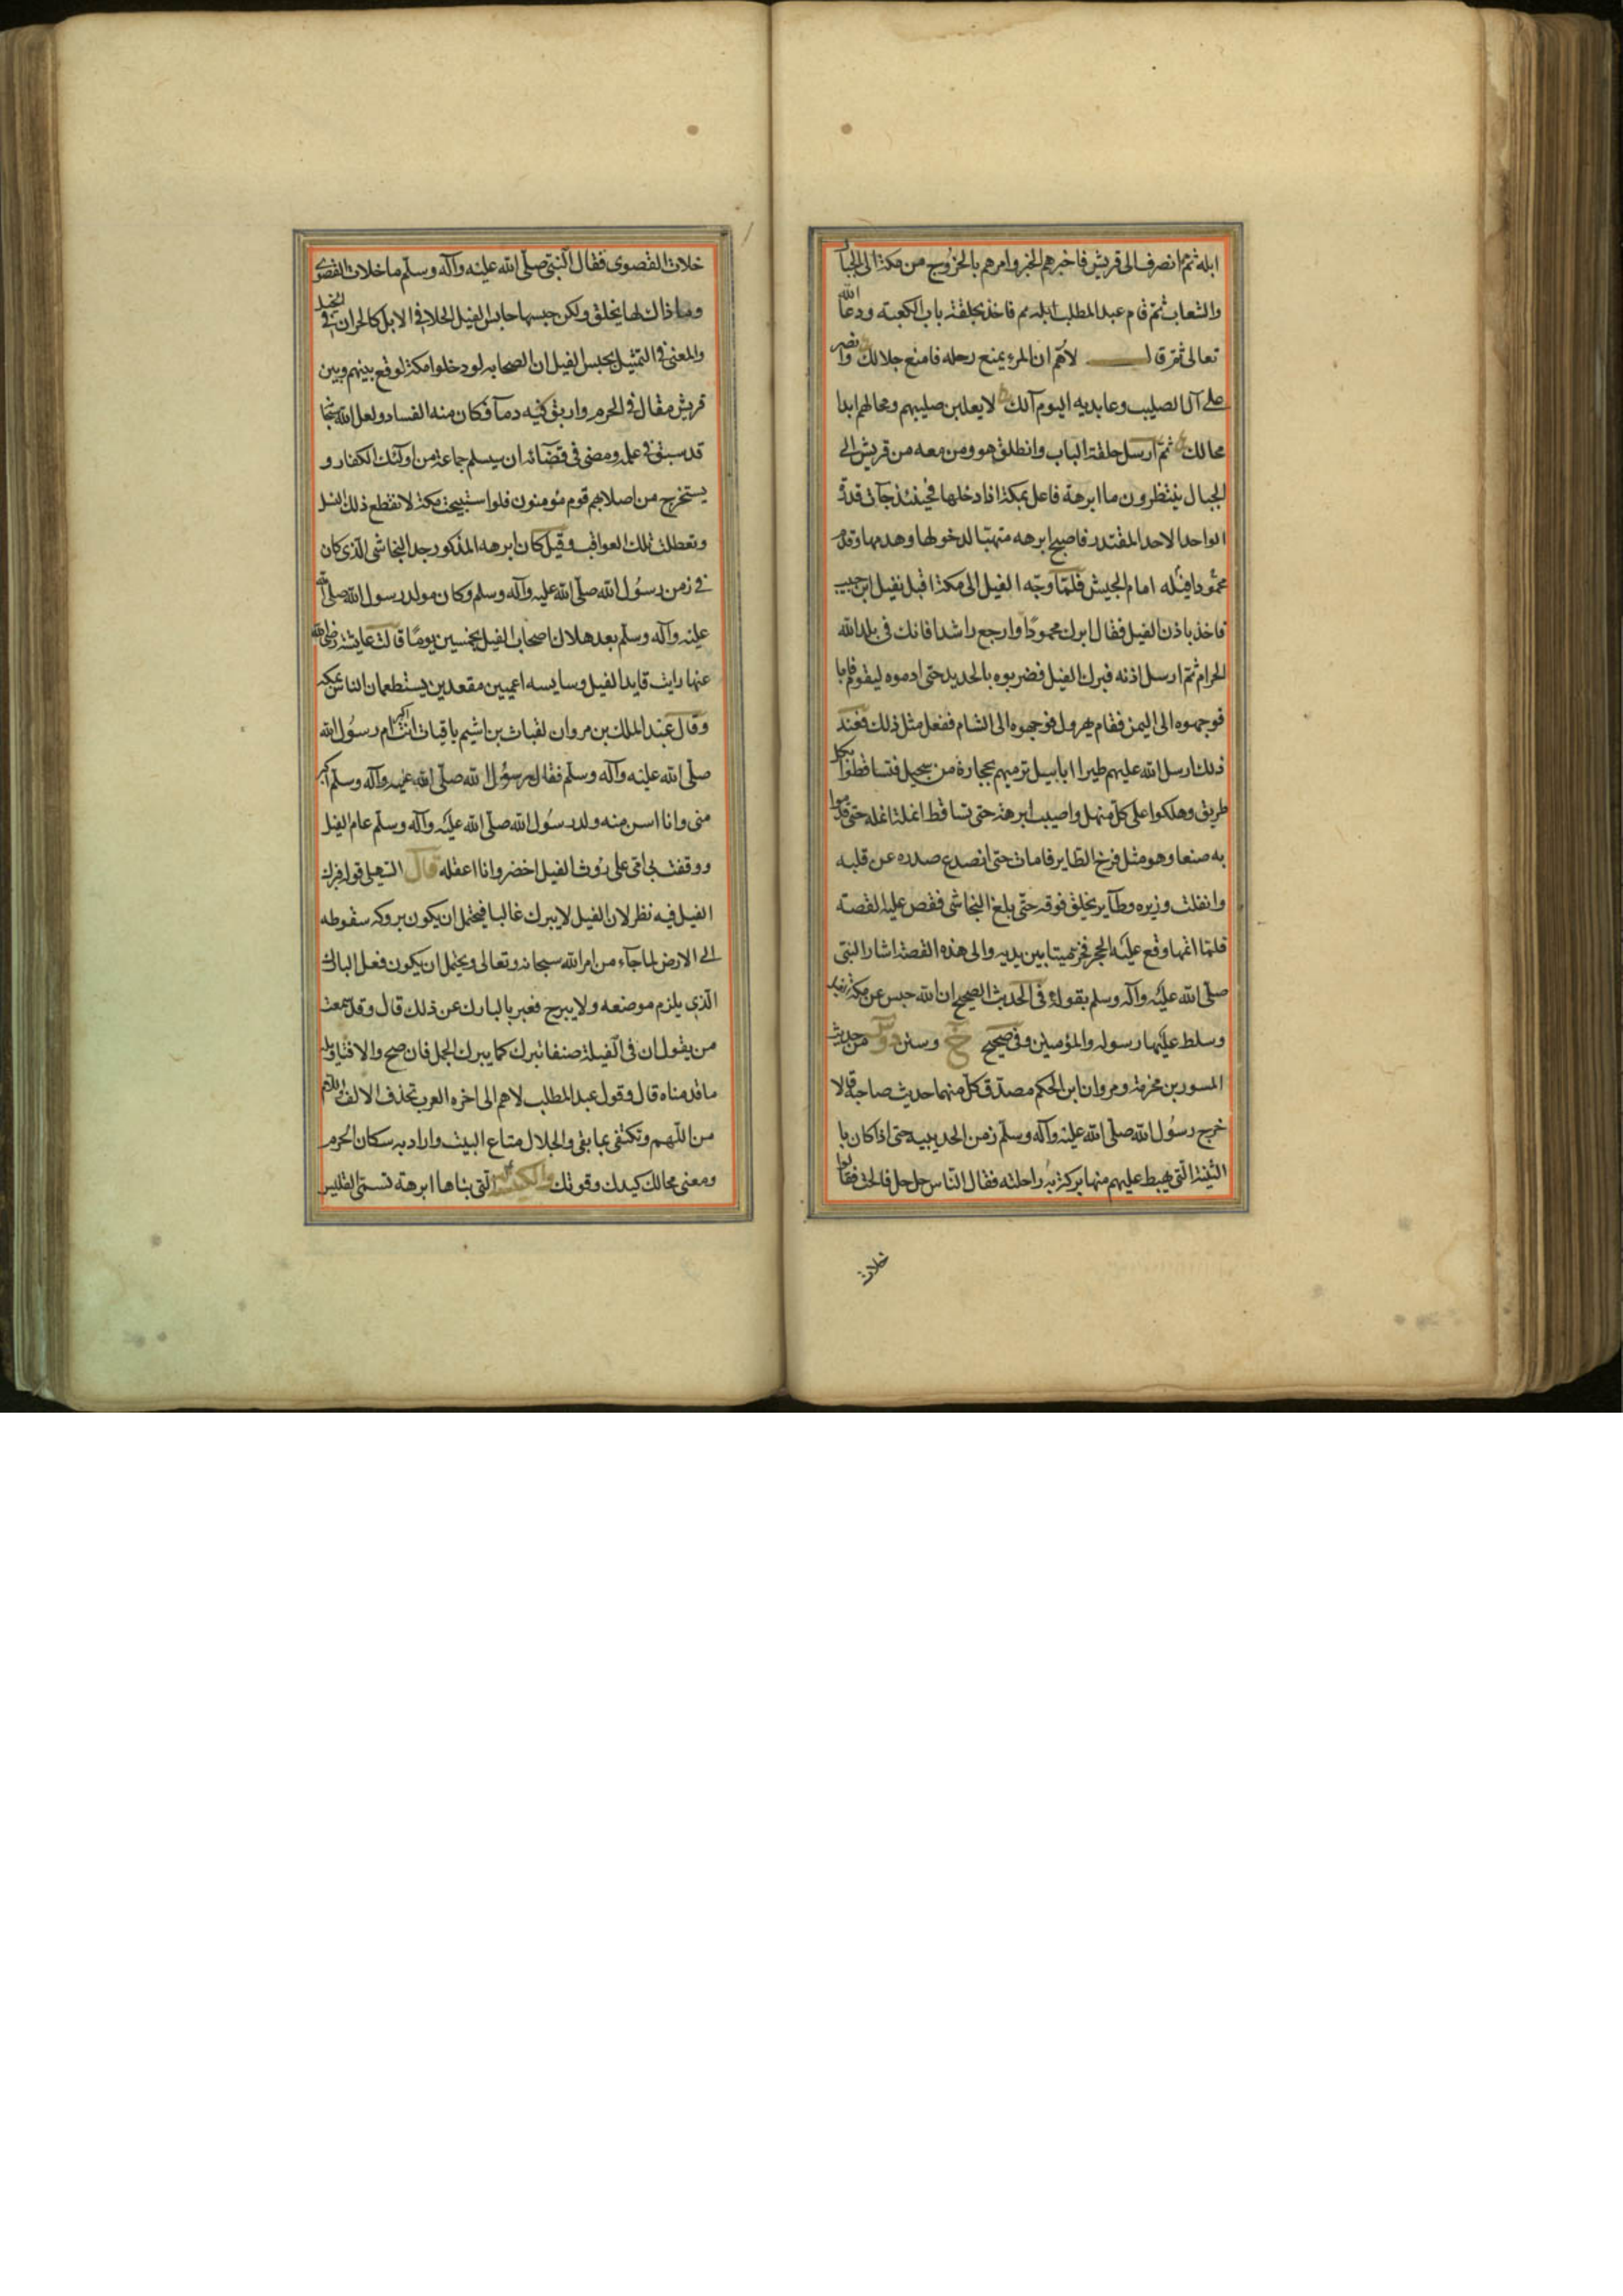 ابله ثم انصرف الى قريش فاخبرهم الخبر وامرهم بالخروج من مكة الى الجبال
والشعاب ثم قام عبد المطلب فاخذ بحلقة باب الكعبة ودعا الله
تعالى ثم قال لاهم ان المرء يمنع رحله فامنع حلالك وانصر
على آل الصليب وعابديه اليوم آلك لا يغلبن صليبهم ومحالهم ابدا
محالك ثم ارسل حلقة الباب وانطلق هو ومن معه من قريش الى
الجبال ينتظرون ما ابرهة فاعل بمكة اذا دخلها فحينئذ جآت قدرة
الواحد الاحد المقتدر فاصبح ابرهه متهيئا لدخولها وهدمها وقدم
محمودا فيله امام الجيش فلما وجه الفيل الى مكة اقبل نفيل ابن حبيب
فاخذ باذن الفيل فقال ابرك محمودا وارجع راشدا فانك فى بلد الله
الحرام ثم ارسل اذنه فبرك الفيل فضربوه بالحديد حتى ادموه ليقوم فابا
فوجهوه الى اليمن فقام يهرول فوجهوه الى الشام ففعل مثل ذلك فعند
ذلك ارسل الله عليهم طيرا ابابيل ترميهم بحجارة من سجيل فتساقطوا بكل
طريق وهلكوا على كل منهل واصيب ابرهة حتى تساقط انملة انملة حتى قدموا
به صنعا وهو مثل فرخ الطاير فما مات حتى انصدع صدره عن قلبه
وانفلت وزيره وطآير يحلق فوقه حتى بلغ النجاشى فقص عليه القصة
فلما اتمها وقع عليه الحجر فخر ميتا بين يديه والى هذه القصة اشار النبى
صلى الله عليه وآله وسلم بقوله فى الحديث الصحيح ان الله حبس عن مكة الفيل
وسلط عليها رسوله والمؤمنين وفى صحيح خ وسنن د من حديث
المسور بن مخرمة ومروان ابن الحكم مصدق كل منهما حديث صاحبه قالا
خرج رسول الله صلى الله عليه وآله وسلم زمن الحديبيه حتى اذا كان با
لثنية التى يهبط عليهم منها بركت به راحلته فقال الناس حل حل فالحت فقالوا
خلات
خلات القصوى فقال النبى صلى الله عليه وآله وسلم ما خلات القصوى
وما ذاك لها بخلق ولكن حبسها حابس الفيل الخلا فى الابل كالحران فى الخيل
والمعنى فى التمثيل بحبس الفيل ان الصحابه لو دخلوا مكة لوقع بينهم وبين
قريش مقال فى الحرم واريق فيه دمآ وكان منه الفساد ولعل الله سبحا
قد سبق فى علمه ومضى فى قضآئه ان يسلم جماعة من اولئك الكفار و
يستخرج من اصلابهم قوم مؤمنون فلو استبيحت مكة لانقطع ذلك النسل
وتعطلت تلك العواقب وقيل كان ابرهه المذكور جد النجاشى الذى كان
فى زمن رسول الله صلى الله عليه وآله وسلم وكان مولد رسول الله صلى الله
عليه وآله وسلم بعد هلاك اصحاب الفيل بخمسين يوما قالت عايشة رضى الله
عنها رايت قايد الفيل وسايسه اعميين مقعدين يستطعمان الناس بمكه
وقال عبد الملك بن مروان لقباث بن اشيم يا قباث انت اكبر ام رسول الله
صلى الله عليه وآله وسلم فقال رسول الله صلى الله عليه وآله وسلم اكبر
منى وانا اسن منه ولد رسول الله صلى الله عليه وآله وسلم عام الفيل
ووقفت بى امى على روث الفيل اخضر وانا اعقله قال السهيلى قوله فبرك
الفيل فيه نظر لان الفيل لا يبرك غالبا فيحتمل ان يكون بروكه سقوطه
الى الارض لما جآء من امر الله سبحانه وتعالى ويحتمل ان يكون فعل البارك
الذى يلزم موضعه ولا يبرح فعبر بالبارك عن ذلك قال وقد سمعت
من يقول ان فى الفيلة صنفا تبرك كما يبرك الجمل فان صح والا فتاويله
ما قدمناه قال وقول عبد المطلب لاهم الى اخره العرب تحذف الالف واللام
من اللهم وتكتفى بما بقى والحلال متاع البيت واراد به سكان الحرم
ومعنى محالك كيدك وقوتك والكنيسة التى بناها ابرهة تسمى القليس